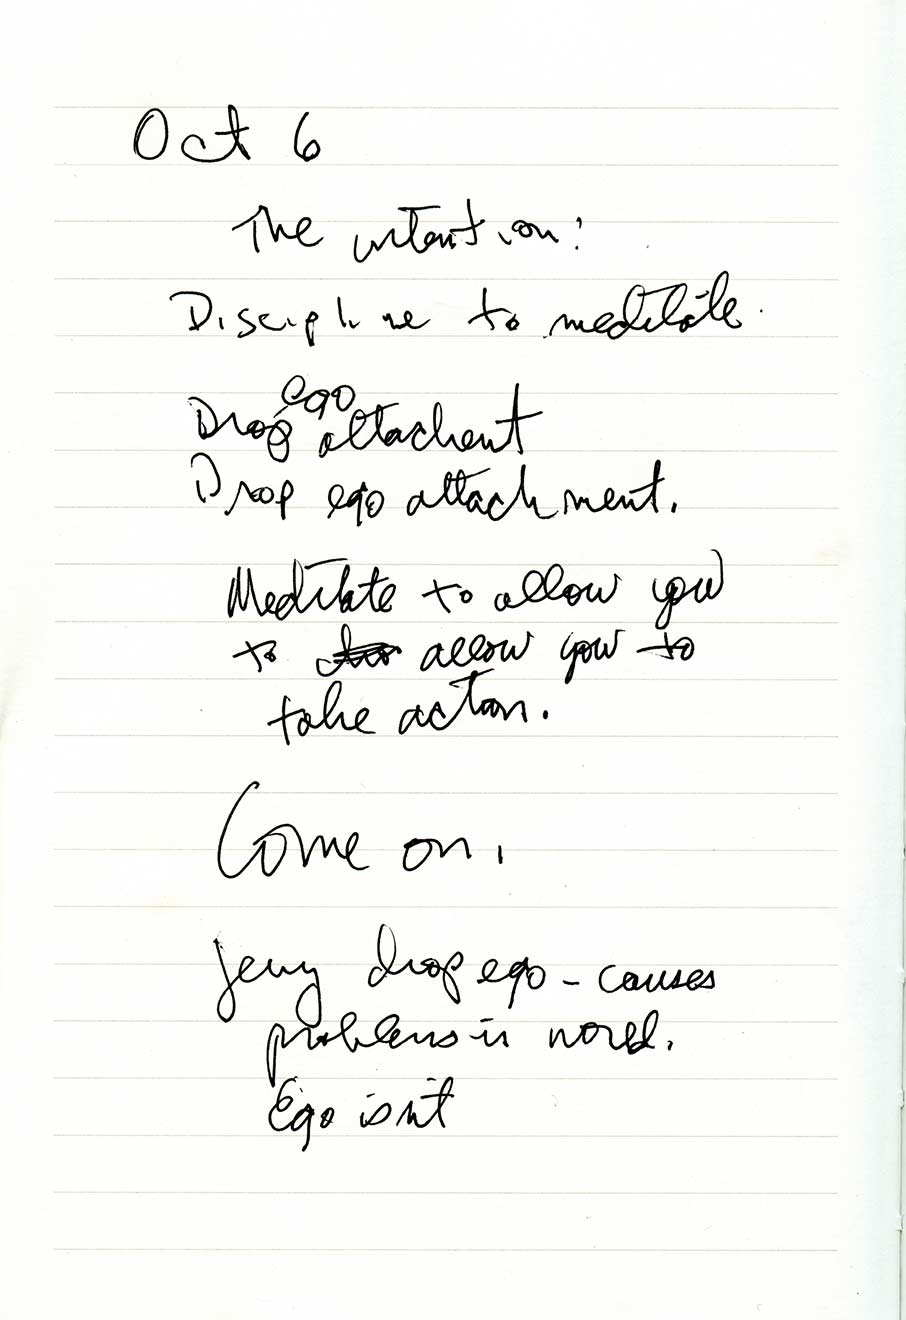 Oct 6
The intention:
Discipline to meditate.
ego
Drop attachent
Drop ego attachment.
Meditate to allow you
to allow you to
take action.
Come on.
Jerry drop ego - causes
problems in world.
Ego isn't